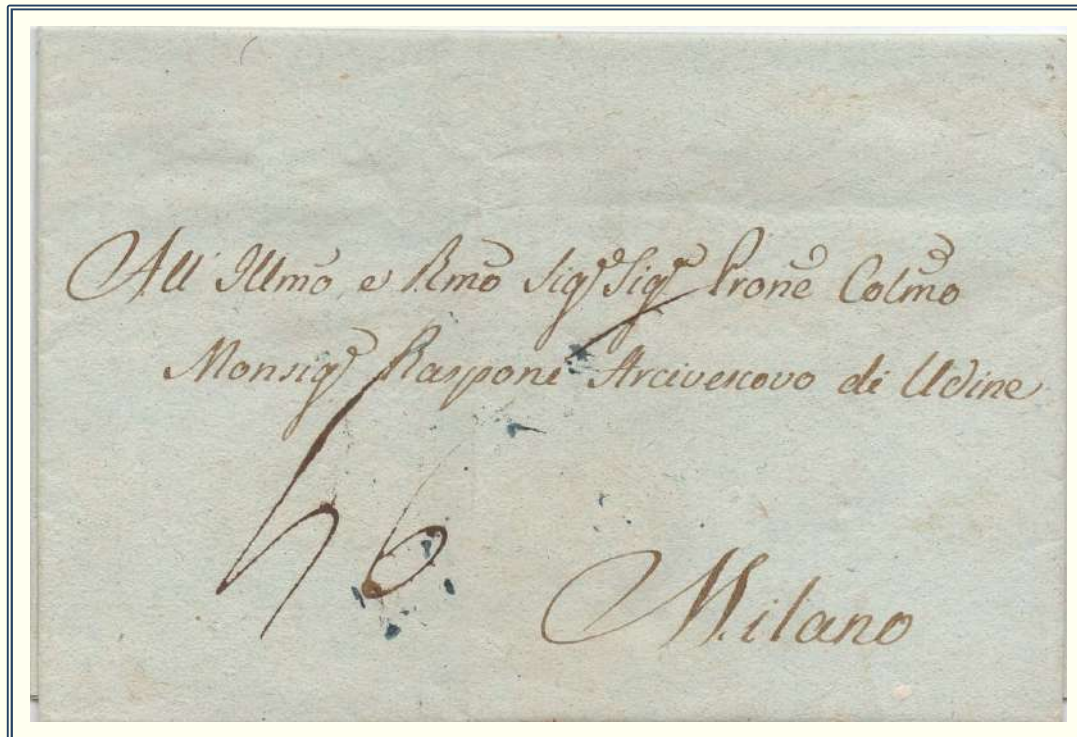 All' Illmo e Rmo Sigr Sigr Prone Colmo
Monsigr Rasponi Arcivescovo di Udine
6
Milano